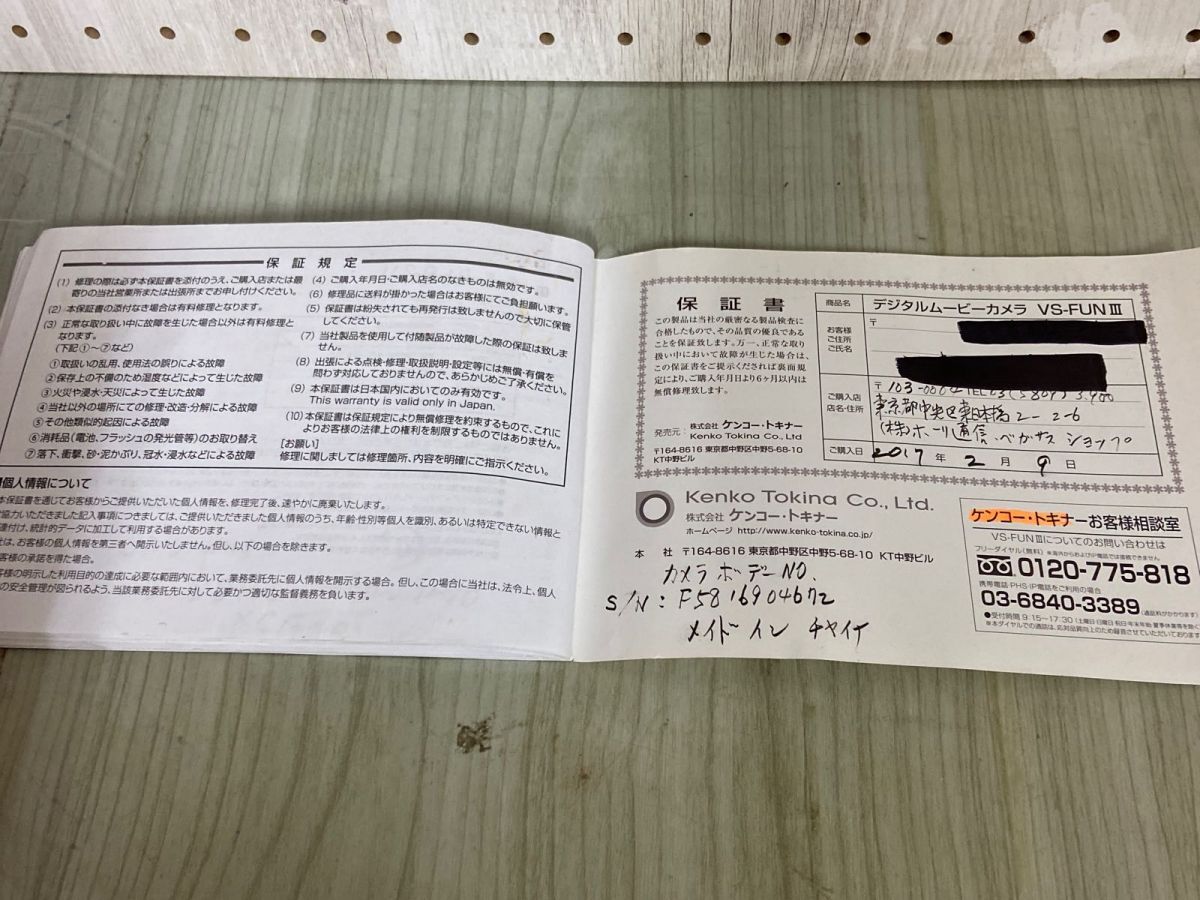 保証規定
(1) 修理の際は必ず本保証書を添付のうえ、ご購入店または最
寄りの当社営業所または出張所までお申し付けください。
(2) 本保証書の添付なき場合は有料修理となります。
(3) 正常な取り扱い中に故障を生じた場合以外は有料修理と
なります。
(下記①～⑦など)
①取扱いの乱用、使用法の誤りによる故障
②保存上の不備のため湿度などによって生じた故障
③火災や浸水・天災によって生じた故障
④当社以外の場所にての修理・改造・分解による故障
⑤その他類似的起因による故障
⑥消耗品(電池、フラッシュの発光管等)のお取り替え
⑦落下、衝撃、砂・泥かぶり、冠水・浸水などによる故障
(4) ご購入年月日・ご購入店名のなきものは無効です。
(6) 修理品に送料が掛かった場合はお客様にてご負担願います。
(5) 保証書は紛失されても再発行は致しませんので大切に保管
してください。
(7) 当社製品を使用して付随製品が故障した際の保証は致しま
せん。
(8) 出張による点検・修理・取扱説明・設定等には無償・有償を
問わず対応しておりませんので、あらかじめご了承ください。
(9) 本保証書は日本国内においてのみ有効です。
This warranty is valid only in Japan.
(10)本保証書は保証規定により無償修理を約束するもので、これに
よりお客様の法律上の権利を制限するものではありません。
[お願い]
修理に関しましては修理箇所、内容を明確にご指示ください。
個人情報について
本保証書を通じてお客様からご提供いただいた個人情報を、修理完了後、速やかに廃棄いたします。
協力いただきました記入事項につきましては、ご提供いただきました個人情報のうち、年齢・性別等個人を識別、あるいは特定できない情報と
連付け、統計的データに加工して利用する場合があります。
は、お客様の個人情報を第三者へ開示いたしません。但し、以下の場合を除きます。
客様の承諾を得た場合。
客様の明示した利用目的の達成に必要な範囲内において、業務委託先に個人情報を開示する場合。但し、この場合に当社は、法令上、個人
の安全管理が図られるよう、当該業務委託先に対して必要かつ適切な監督義務を負います。
保証書
この製品は当社の厳密なる製品検査に
合格したもので、その品質の優良であ
ることを保証致します。万一、正常な取り
扱い中において故障が生じた場合は、
この保証書をご提示くだされば裏面規
定により、ご購入年月日より6ヶ月以内は
無償修理致します。
発売元: 株式会社 ケンコー・トキナー
Kenko Tokina Co., Ltd
〒164-8616 東京都中野区中野5-68-10
KT中野ビル
商品名 デジタルムービーカメラ VS-FUNⅢ
お客様
ご住所
ご氏名
〒
ご購入店
店名・住所
〒103-0002
東京都中央区東日本橋2-2-6
(株)ホーリ通信 ペガサスショップ
ご購入日 2017年 2月 9日
Kenko Tokina Co., Ltd.
株式会社 ケンコー・トキナー
ホームページ http://www.kenko-tokina.co.jp/
本 社 〒164-8616 東京都中野区中野5-68-10 KT中野ビル
カメラボデーNO.
S/N: F5816904672
メイドイン チャイナ
ケンコー・トキナーお客様相談室
VS-FUNⅢについてのお問い合わせは
フリーダイヤル(無料) ※海外からおよびIP電話では接続できません。
0120-775-818
携帯電話・PHS・IP電話をご利用の場合
03-6840-3389(通話料がかかります)
●受付時間 9:15～17:30 (土曜日・日曜日・祝日・年末年始・夏季休業等を除く)
※本ダイヤルでの通話は、応対品質向上のため録音させていただいております